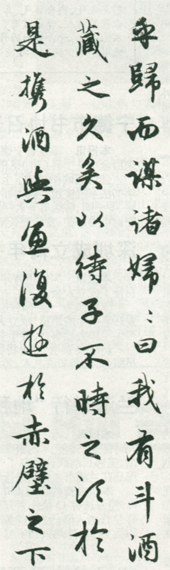 乎歸而謀諸婦〻曰我有斗酒
藏之久矣以待子不時之須於
是携酒與魚復遊於赤壁之下